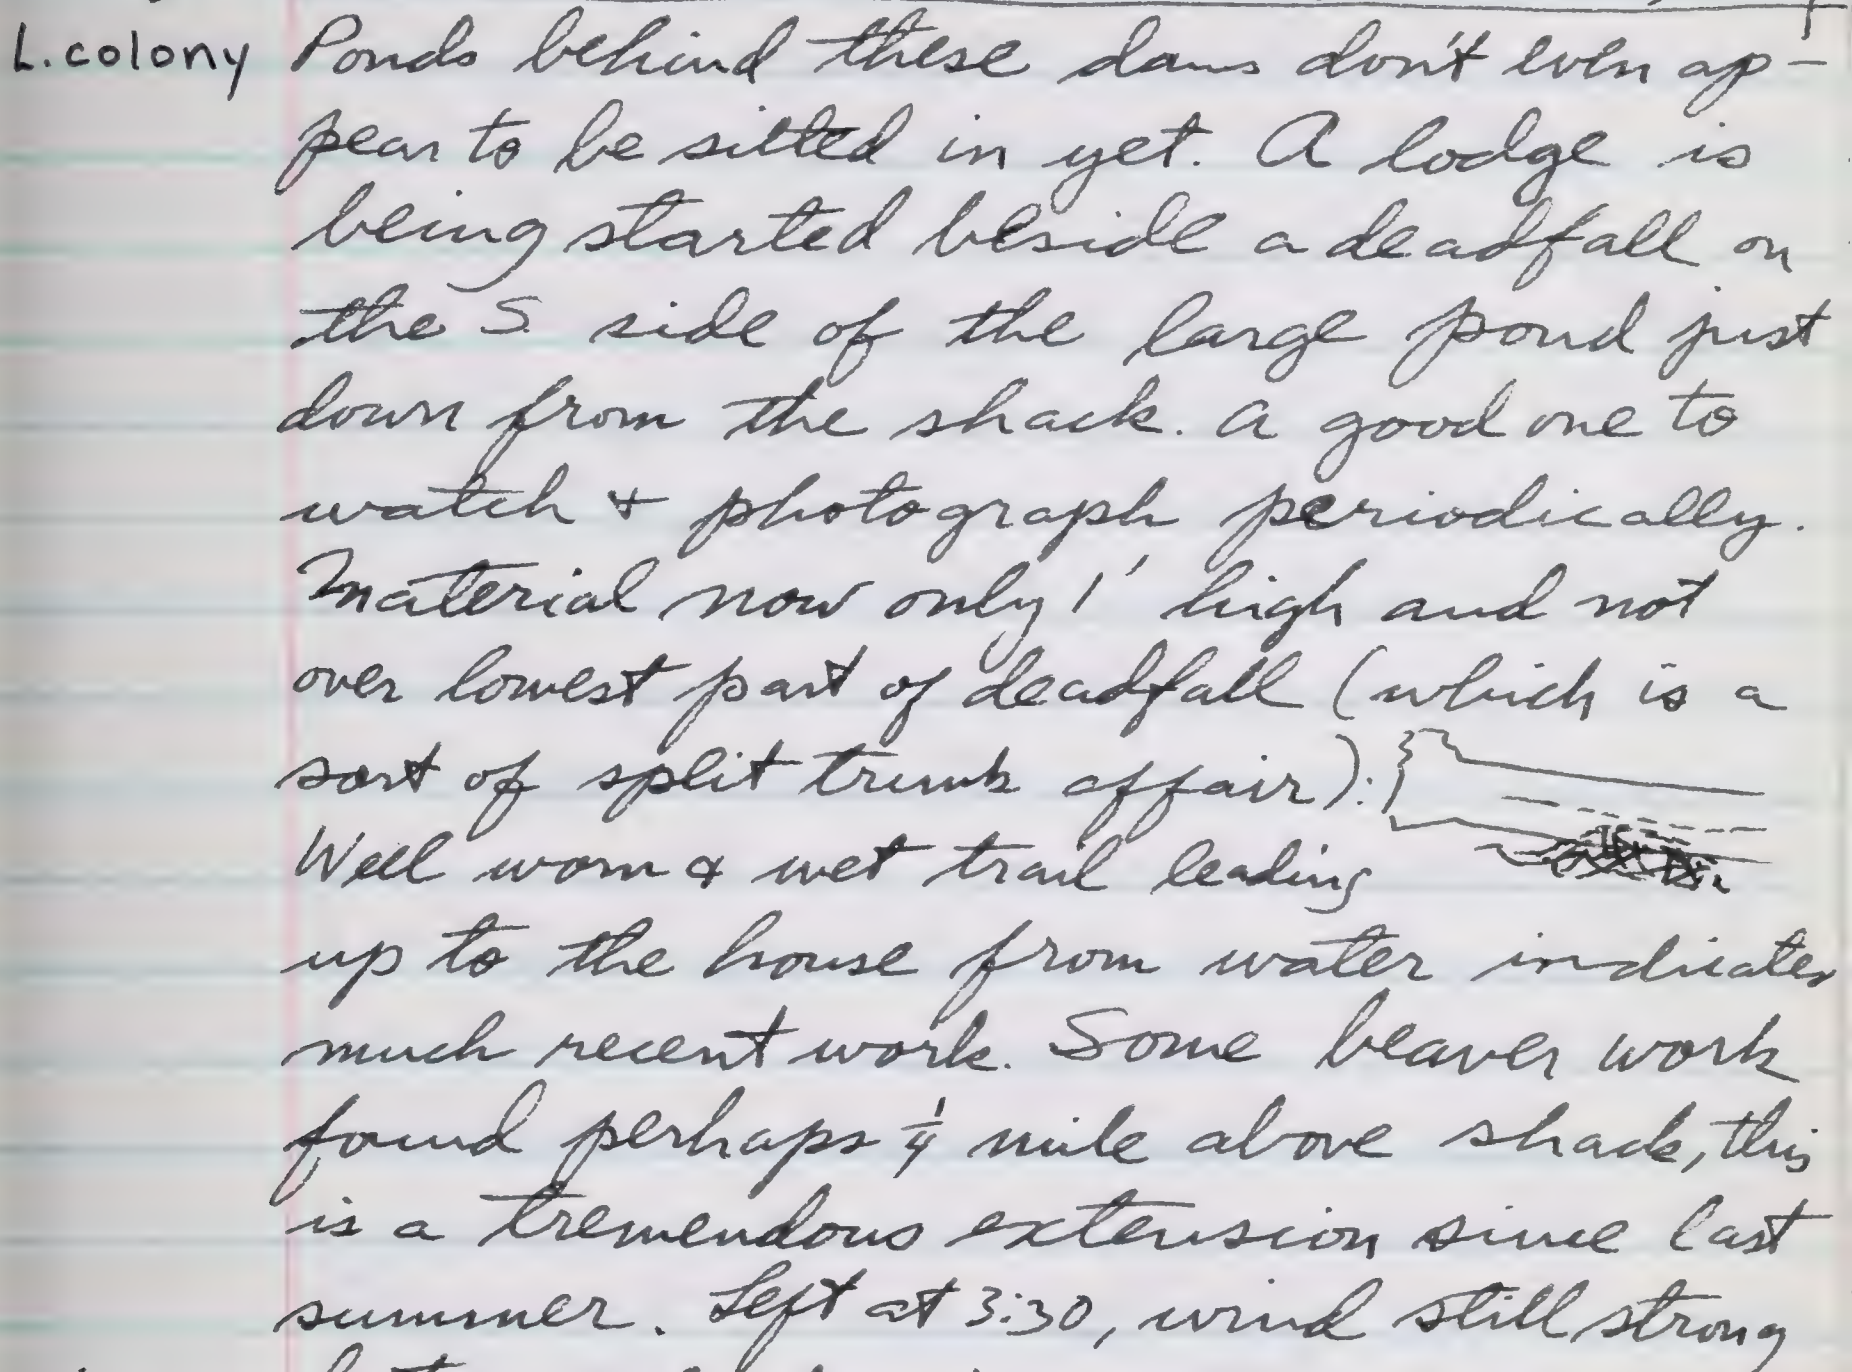 L. colony Ponds behind these dams don't even ap-
pear to be silted in yet. A lodge is
being started beside a deadfall on
the S. side of the large pond just
down from the shack. A good one to
watch + photograph periodically.
Material now only 1' high and not
over lowest part of deadfall (which is a
sort of split trunk affair):
Well worn & wet trail leading
up to the house from water indicates
much recent work. Some beaver work
found perhaps 1/4 mile above shack, this
is a tremendous extension since last
summer. Left at 3:30, wind still strong